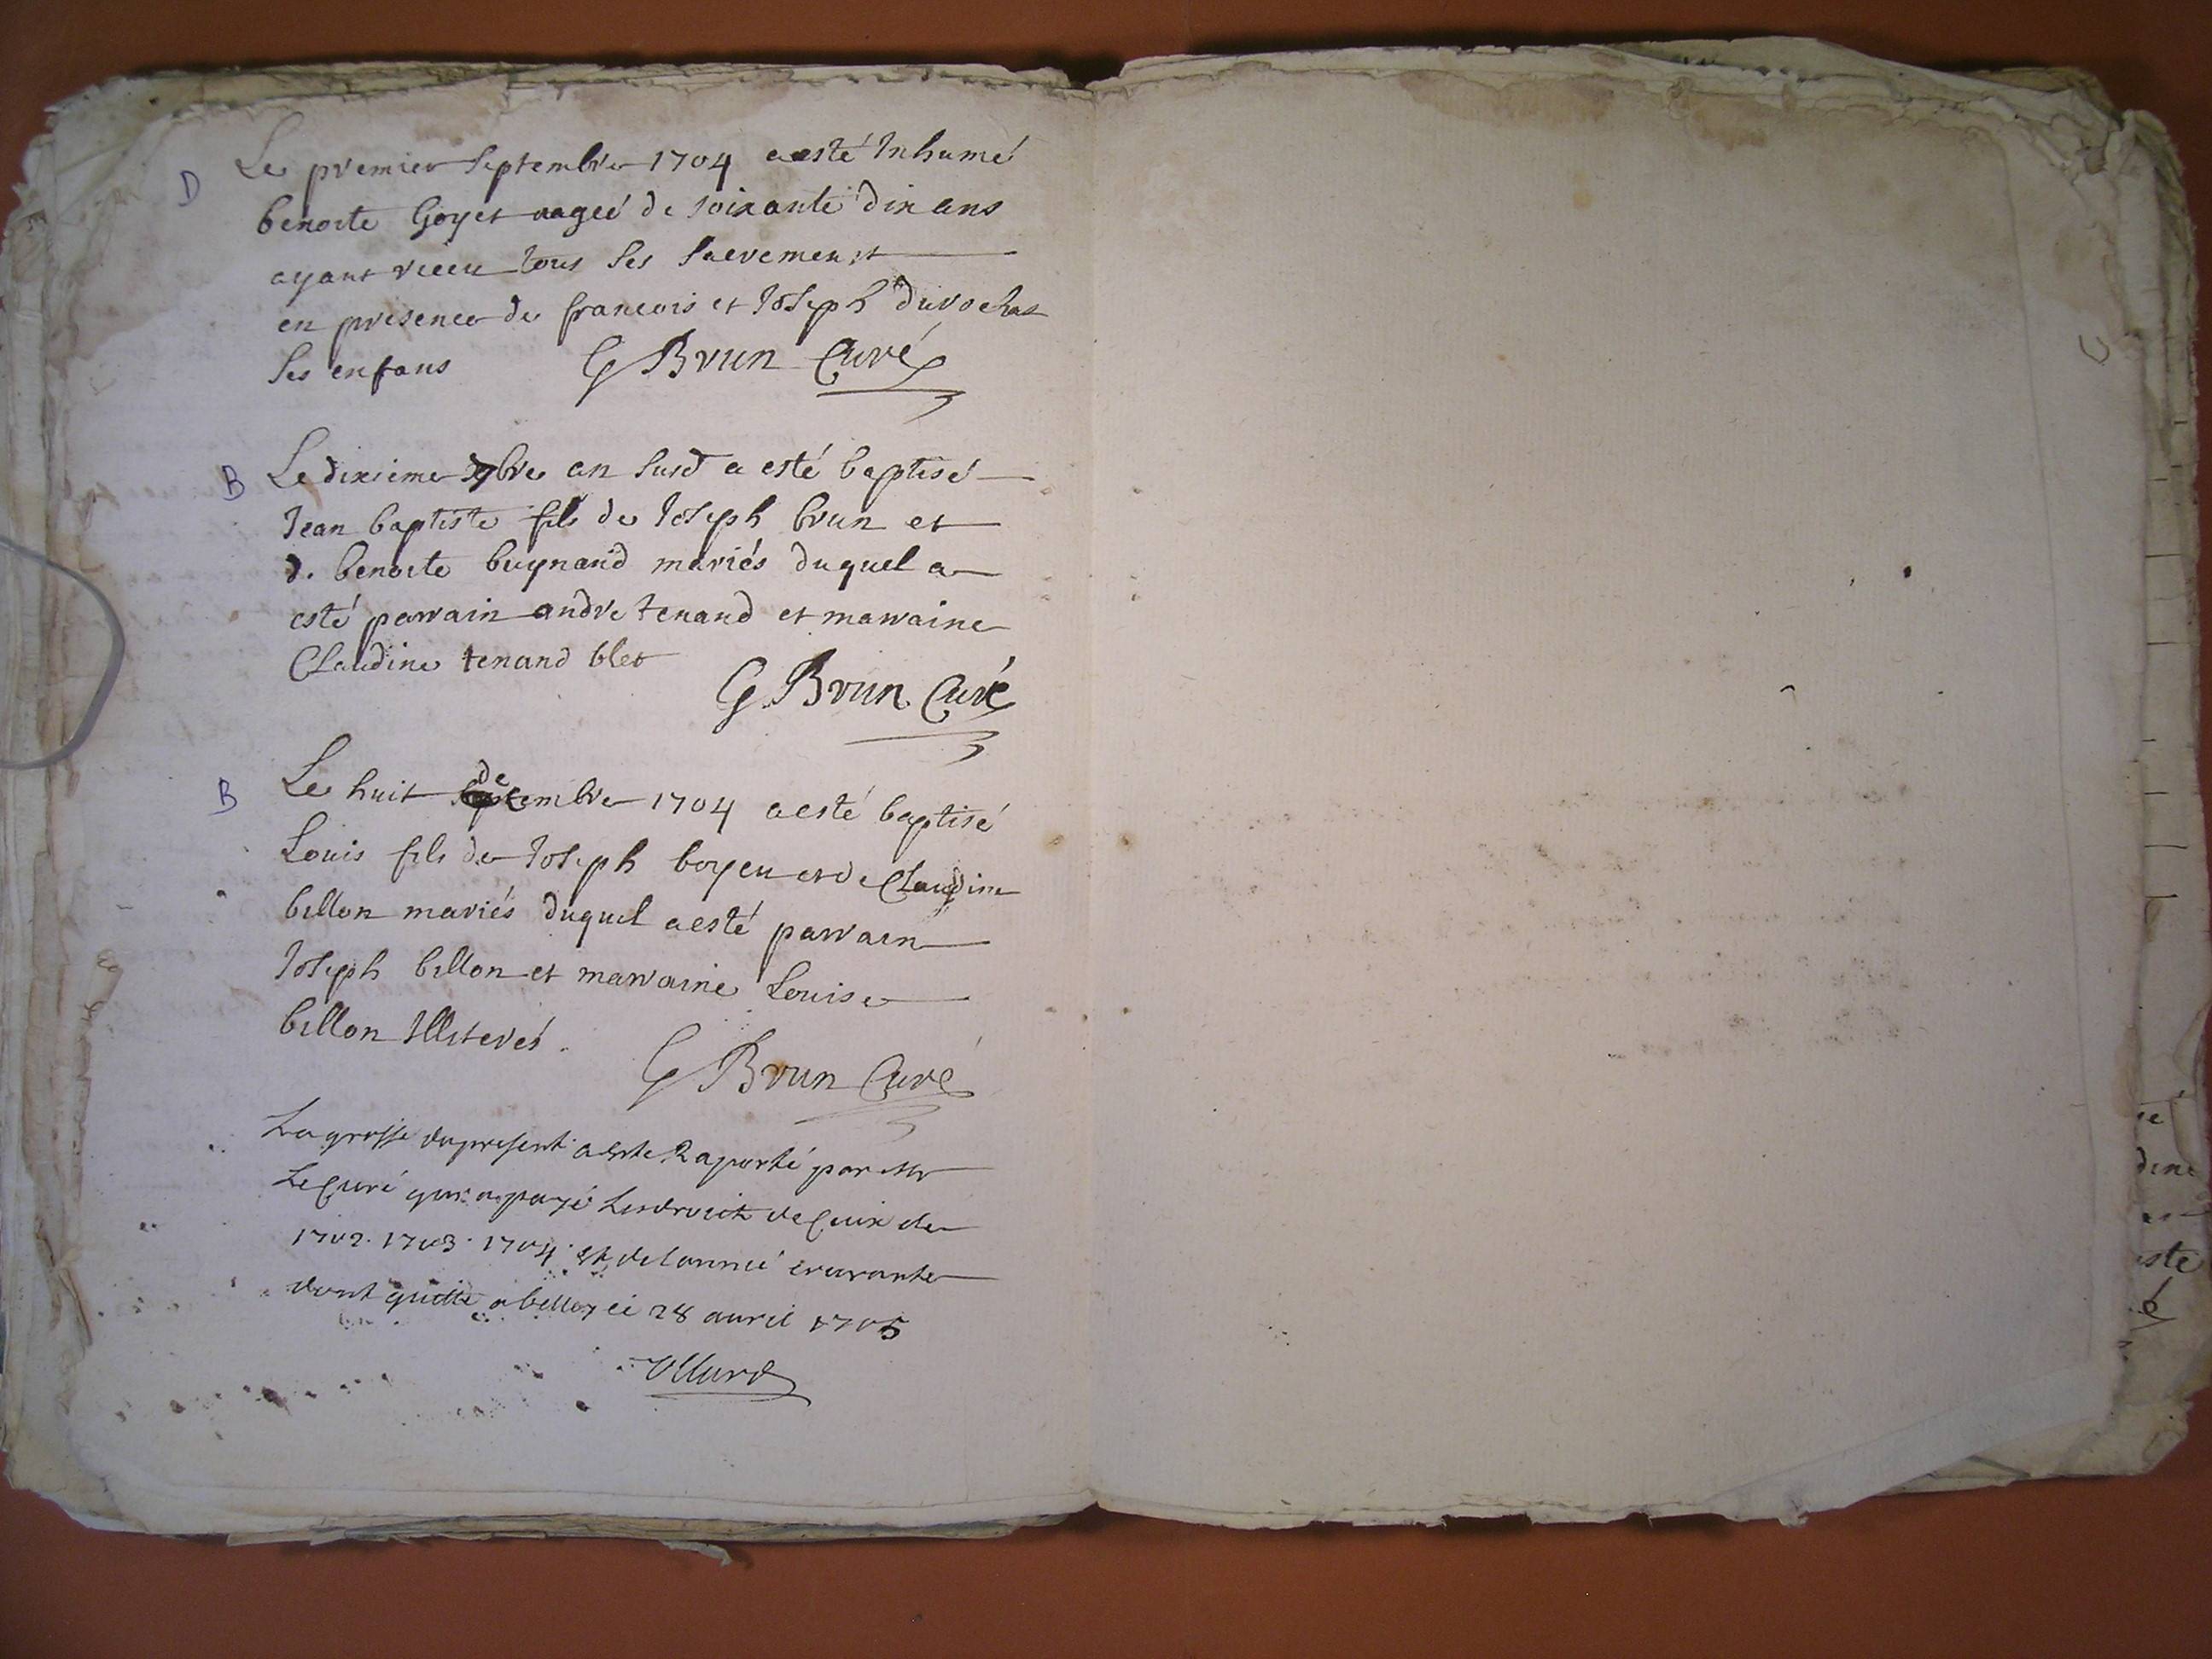 D
Le premier Septembre 1704 a esté Inhumé
benoite Goyet aagée de soixante dix ans
ayant receu tous ses sacrement
en presence de francois et Joseph durochat
ses enfans G Brun Curé
B
Le dixieme 7bre an susd a esté baptisé
Jean baptiste fils de Joseph brun et
d. benoite buynand mariés duquel a
esté parrain andre tenand et marraine
Claudine tenand
G Brun Curé
B
Le huit decembre 1704 a esté baptisé
Louis fils de Joseph boyeu et de Claudine
billon mariés duquel a esté parrain
Joseph billon et marraine Louise
billon Illiterés.
G Brun Curé
La grosse du present a este Raporté par Mr
Le Curé qui a payé Les droits de
1702. 1703. 1704. et de lannée courante
dont quitte a belley ce 28 avril 1705